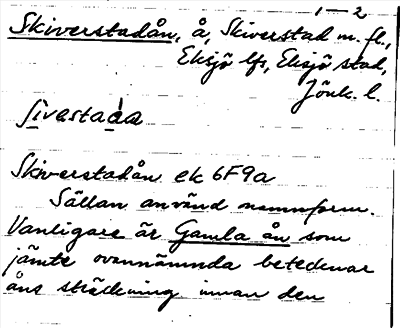 1—2
Skiverstadån, å, Skiverstad m. fl.,
Eksjö lfs, Eksjö stad,
Jönk. l.
Skiverstadån ek 6F9a
Sällan använd namnform.
Vanligare är Gamla ån som
jämte ovannämnda betecknar
åns sträckning innan den